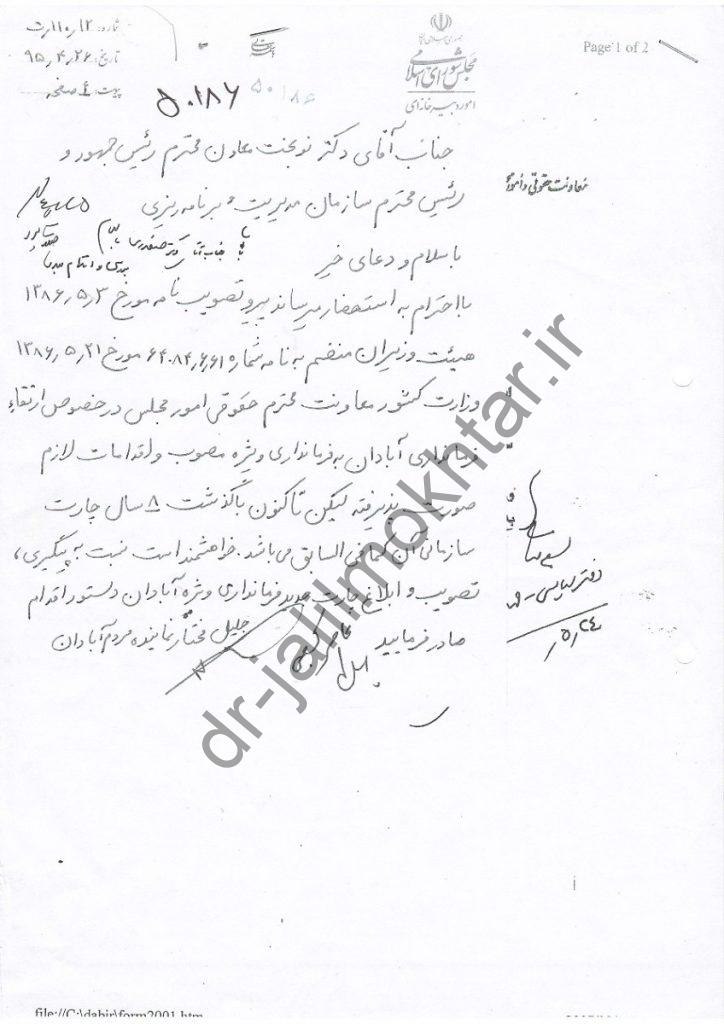 Page 1 of 2
جمهوری اسلامی ایران
مجلس شورای اسلامی
امور دبیرخانه‌ای
شماره: ۱۲/۱۱۰رت
تاریخ: ۹۵٫۴٫۲۶
پیوست: ۴ صفحه
۵۰۱۸۶
۵۰۱۸۶
جناب آقای دکتر نوبخت معاون محترم رئیس جمهور و
معاونت حقوقی و امور
رئیس محترم سازمان مدیریت و برنامه ریزی
با سلام و دعای خیر
جناب آقای دکتر
با احترام به استحضار میرساند پیرو تصویب نامه مورخ ۱۳۸۶٫۵٫۳
هیئت وزیران منضم به نامه شماره ۶۴۰۸۴٫۶٫۶۱ مورخ ۱۳۸۶٫۵٫۲۱
وزارت کشور معاونت محترم حقوقی امور مجلس در خصوص ارتقاء
فرمانداری آبادان به فرمانداری ویژه مصوب و اقدامات لازم
صورت پذیرفته لیکن تاکنون با گذشت ۸ سال چارت
سازمانی آن کمافی السابق می باشد. خواهشمند است نسبت به پیگیری،
تصویب و ابلاغ چارت جدید فرمانداری ویژه آبادان دستور اقدام
صادر فرمایید
جلیل مختار نماینده مردم آبادان
دفتر سیاسی
۵٫۲۴
dr-jalilmokhtar.ir
file://C:\dabir\form2001.htm